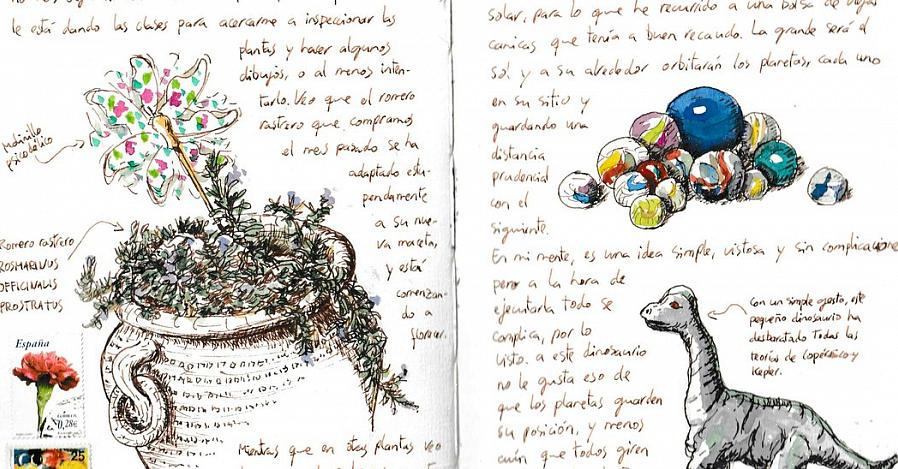 le está dando las clases para acercarme a inspeccionar las
plantas y hacer algunos
dibujos, o al menos inten-
tarlo. Veo que el romero
rastrero que compramos
el mes pasado se ha
adaptado estu-
pendamente
a su nue-
va maceta,
y está
comenzan-
do a
florecer.
Molinillo
psicodélico
Romero rastrero
ROSMARINUS
OFFICINALIS
PROSTRATUS
España
CORREOS
0,28€
25
Mientras que en otras plantas veo
solar, para lo que he recurrido a una bolsa de viejas
canicas que tenía a buen recaudo. La grande será el
sol y a su alrededor orbitarán los planetas, cada uno
en su sitio y
guardando una
distancia
prudencial
con el
siguiente.
En mi mente, es una idea simple, vistosa y sin complicaciones
pero a la hora de
ejecutarla todo se
complica, por lo
visto a este dinosaurio
no le gusta eso de
que los planetas guarden
su posición, y menos
aún que todos giren
Con un simple gesto, este
pequeño dinosaurio ha
desbaratado todas las
teorías de Copérnico y
Kepler.